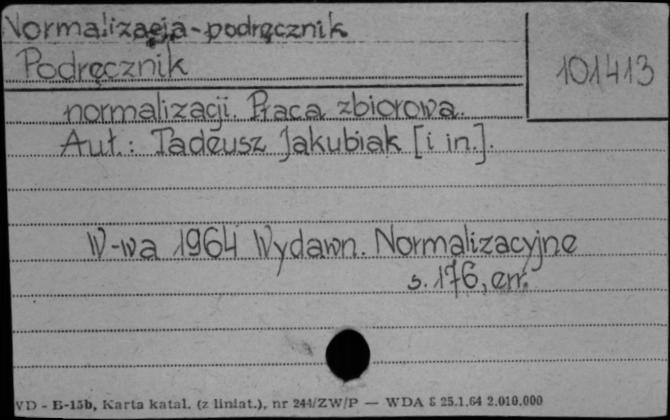 Normalizacja - podręcznik
Podręcznik
101413
normalizacji. Praca zbiorowa.
Aut.: Tadeusz Jakubiak [i in.].
W-wa 1964 Wydawn. Normalizacyjne
s. 176, err.
VD - B-15b, Karta katal. (z liniat.), nr 244/ZW/P — WDA S 25.1.64 2.010.000